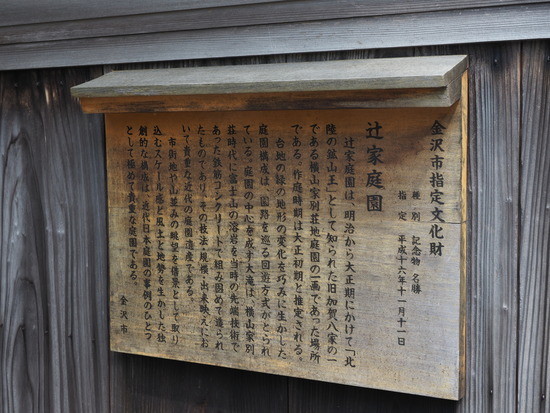 金沢市指定文化財
種別　記念物　名勝
指定　平成十六年十一月十一日
辻家庭園
辻家庭園は、明治から大正期にかけて「北
陸の鉱山王」として知られた旧加賀八家の一
である横山家別荘地庭園の一画であった場所
である。作庭時期は大正初期と推定される。
台地の縁の地形の変化を巧みに生かした
庭園構成は、園路を巡る回遊方式がとられ
ている。庭園の中心を成す大滝は、横山家別
荘時代に富士山の溶岩を当時の先端技術で
あった鉄筋コンクリートで組み固めて造られ
たものであり、その技法・規模・出来映えにお
いて貴重な近代の庭園遺産である。
市街地や山並みの眺望を借景として取り
込むスケール感と風土と地勢を生かした独
創的な構成は、近代日本庭園の事例のひとつ
として極めて貴重な庭園である。
金沢市